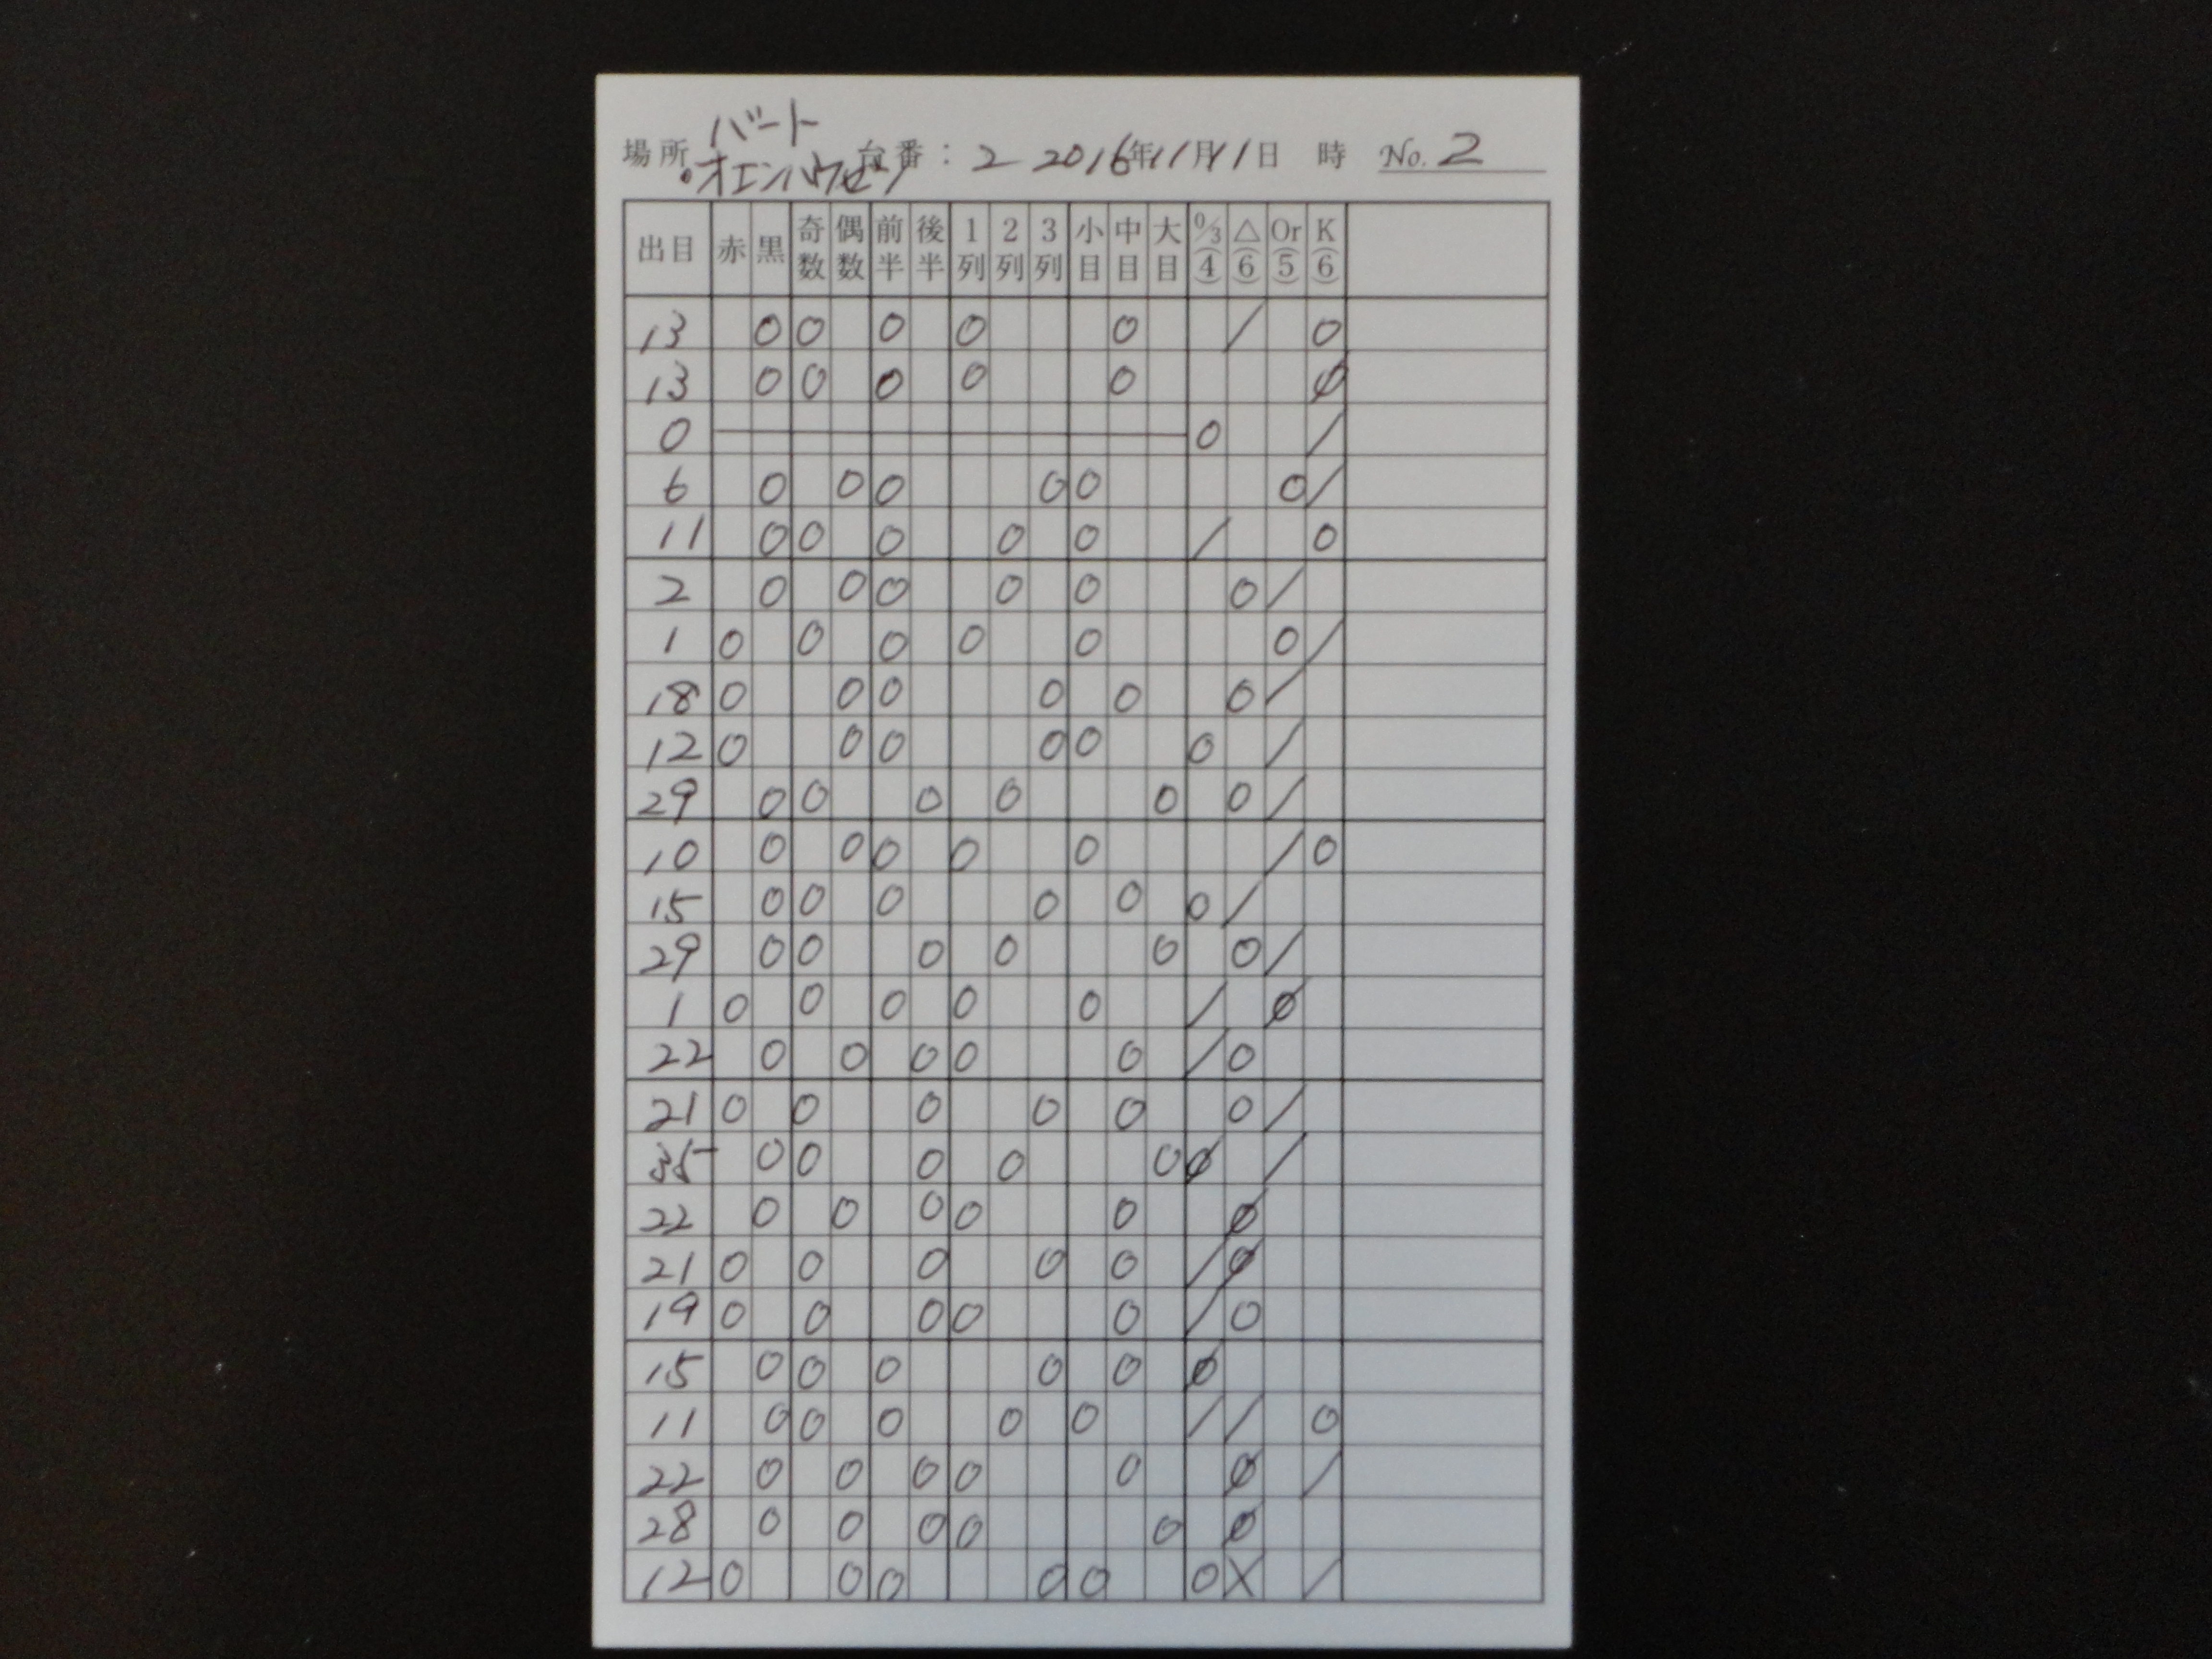 場所 バート 台番: 2 2016年11月11日 時 No. 2
・オエンハウゼン
出目 赤 黒 奇数 偶数 前半 後半 1列 2列 3列 小目 中目 大目 0/3(4) △(6) Or(5) K(6)
13 0 0 0 0 0 / 0
13 0 0 0 0 0 Ø
0 0 /
6 0 0 0 0 0 0 /
11 0 0 0 0 0 / 0
2 0 0 0 0 0 0 /
1 0 0 0 0 0 0 /
18 0 0 0 0 0 0 /
12 0 0 0 0 0 0 /
29 0 0 0 0 0 0 /
10 0 0 0 0 0 / 0
15 0 0 0 0 0 0 /
29 0 0 0 0 0 0 /
1 0 0 0 0 0 / Ø
22 0 0 0 0 0 / 0
21 0 0 0 0 0 0 /
35 0 0 0 0 0 Ø /
22 0 0 0 0 0 Ø
21 0 0 0 0 0 / Ø
19 0 0 0 0 0 / 0
15 0 0 0 0 0 Ø
11 0 0 0 0 0 / / 0
22 0 0 0 0 0 Ø /
28 0 0 0 0 0 Ø
12 0 0 0 0 0 0 X /